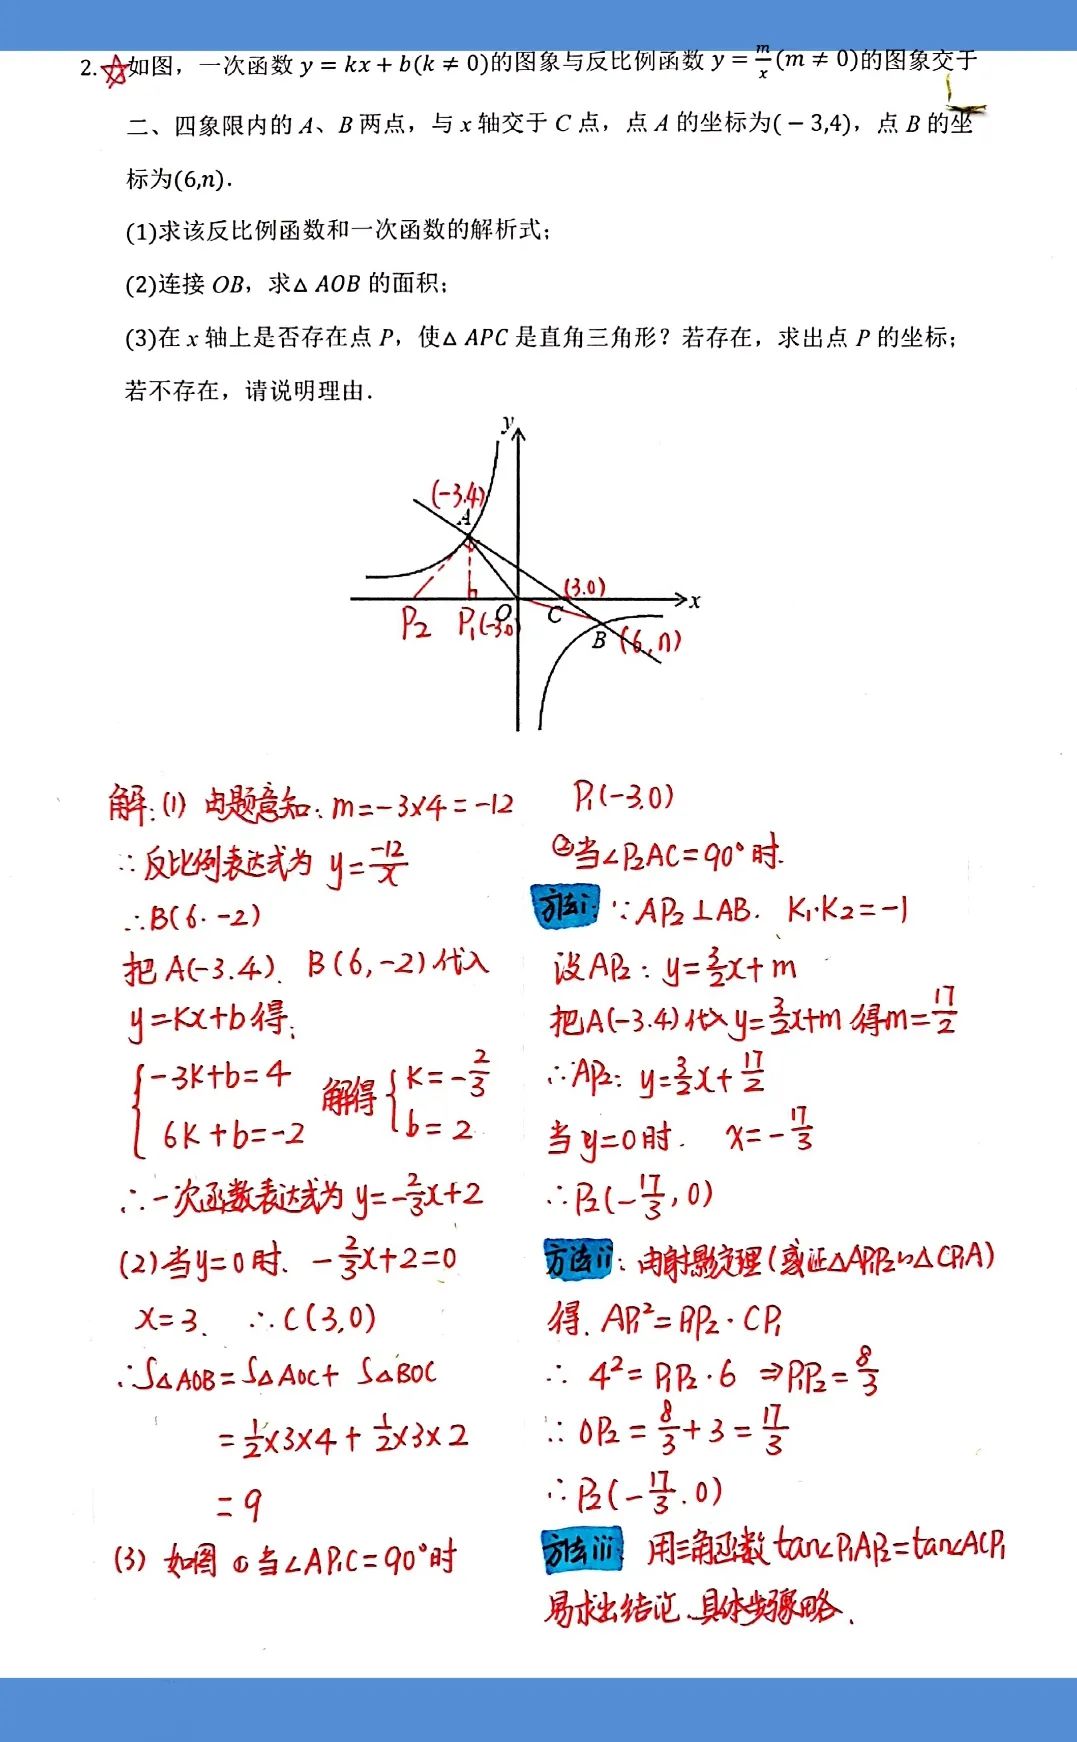 2.☆如图，一次函数 y = kx + b(k ≠ 0)的图象与反比例函数 y = m/x (m ≠ 0)的图象交于
二、四象限内的 A、B 两点，与 x 轴交于 C 点，点 A 的坐标为( − 3,4)，点 B 的坐
标为(6,n)．
(1)求该反比例函数和一次函数的解析式；
(2)连接 OB，求△ AOB 的面积；
(3)在 x 轴上是否存在点 P，使△ APC 是直角三角形？若存在，求出点 P 的坐标；
若不存在，请说明理由．
y
(-3.4)
A
(3.0)
x
O
C
P₂
P₁(-3.0)
B
(6,n)
解:(1) 由题意知: m=-3×4=-12
∴反比例表达式为 y=-12/x
∴B(6.-2)
把A(-3.4). B(6,-2)代入
y=Kx+b得:
{-3K+b=4
6K+b=-2
解得
{K=-2/3
b=2
∴一次函数表达式为 y=-2/3x+2
(2)当y=0时. -2/3x+2=0
x=3. ∴C(3,0)
∴S△AOB=S△AOC+S△BOC
=1/2×3×4+1/2×3×2
=9
(3) 如图 ①当∠AP₁C=90°时
P₁(-3.0)
②当∠P₂AC=90°时.
方法i: ∵AP₂⊥AB. K₁·K₂=-1
设AP₂: y=3/2x+m
把A(-3.4)代入y=3/2x+m 得m=17/2
∴AP₂: y=3/2x+17/2
当y=0时. x=-17/3
∴P₂(-17/3,0)
方法ii: 由射影定理(或证△AP₁P₂∽△CP₁A)
得. AP₁²=P₁P₂·CP₁
∴ 4²=P₁P₂·6 ⇒P₁P₂=8/3
∴ OP₂=8/3+3=17/3
∴P₂(-17/3.0)
方法iii: 用三角函数tan∠P₁AP₂=tan∠ACP₁
易求出结论.具体步骤略.